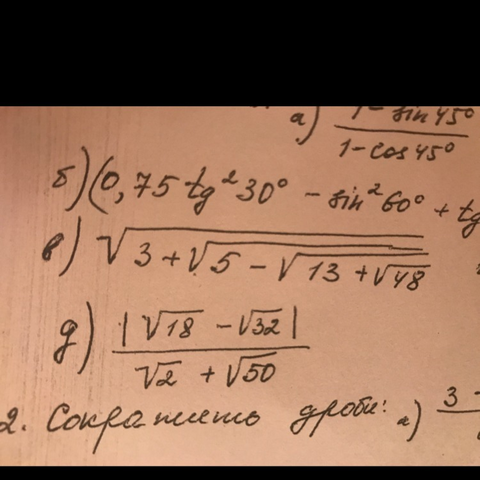 а) (1 - sin 45°)/(1 - cos 45°)
б) (0,75 tg² 30° - sin² 60° + tg
в) √(3 + √(5 - √(13 + √48)))
д) |√18 - √32|/(√2 + √50)
2. Сократить дроби: а) 3